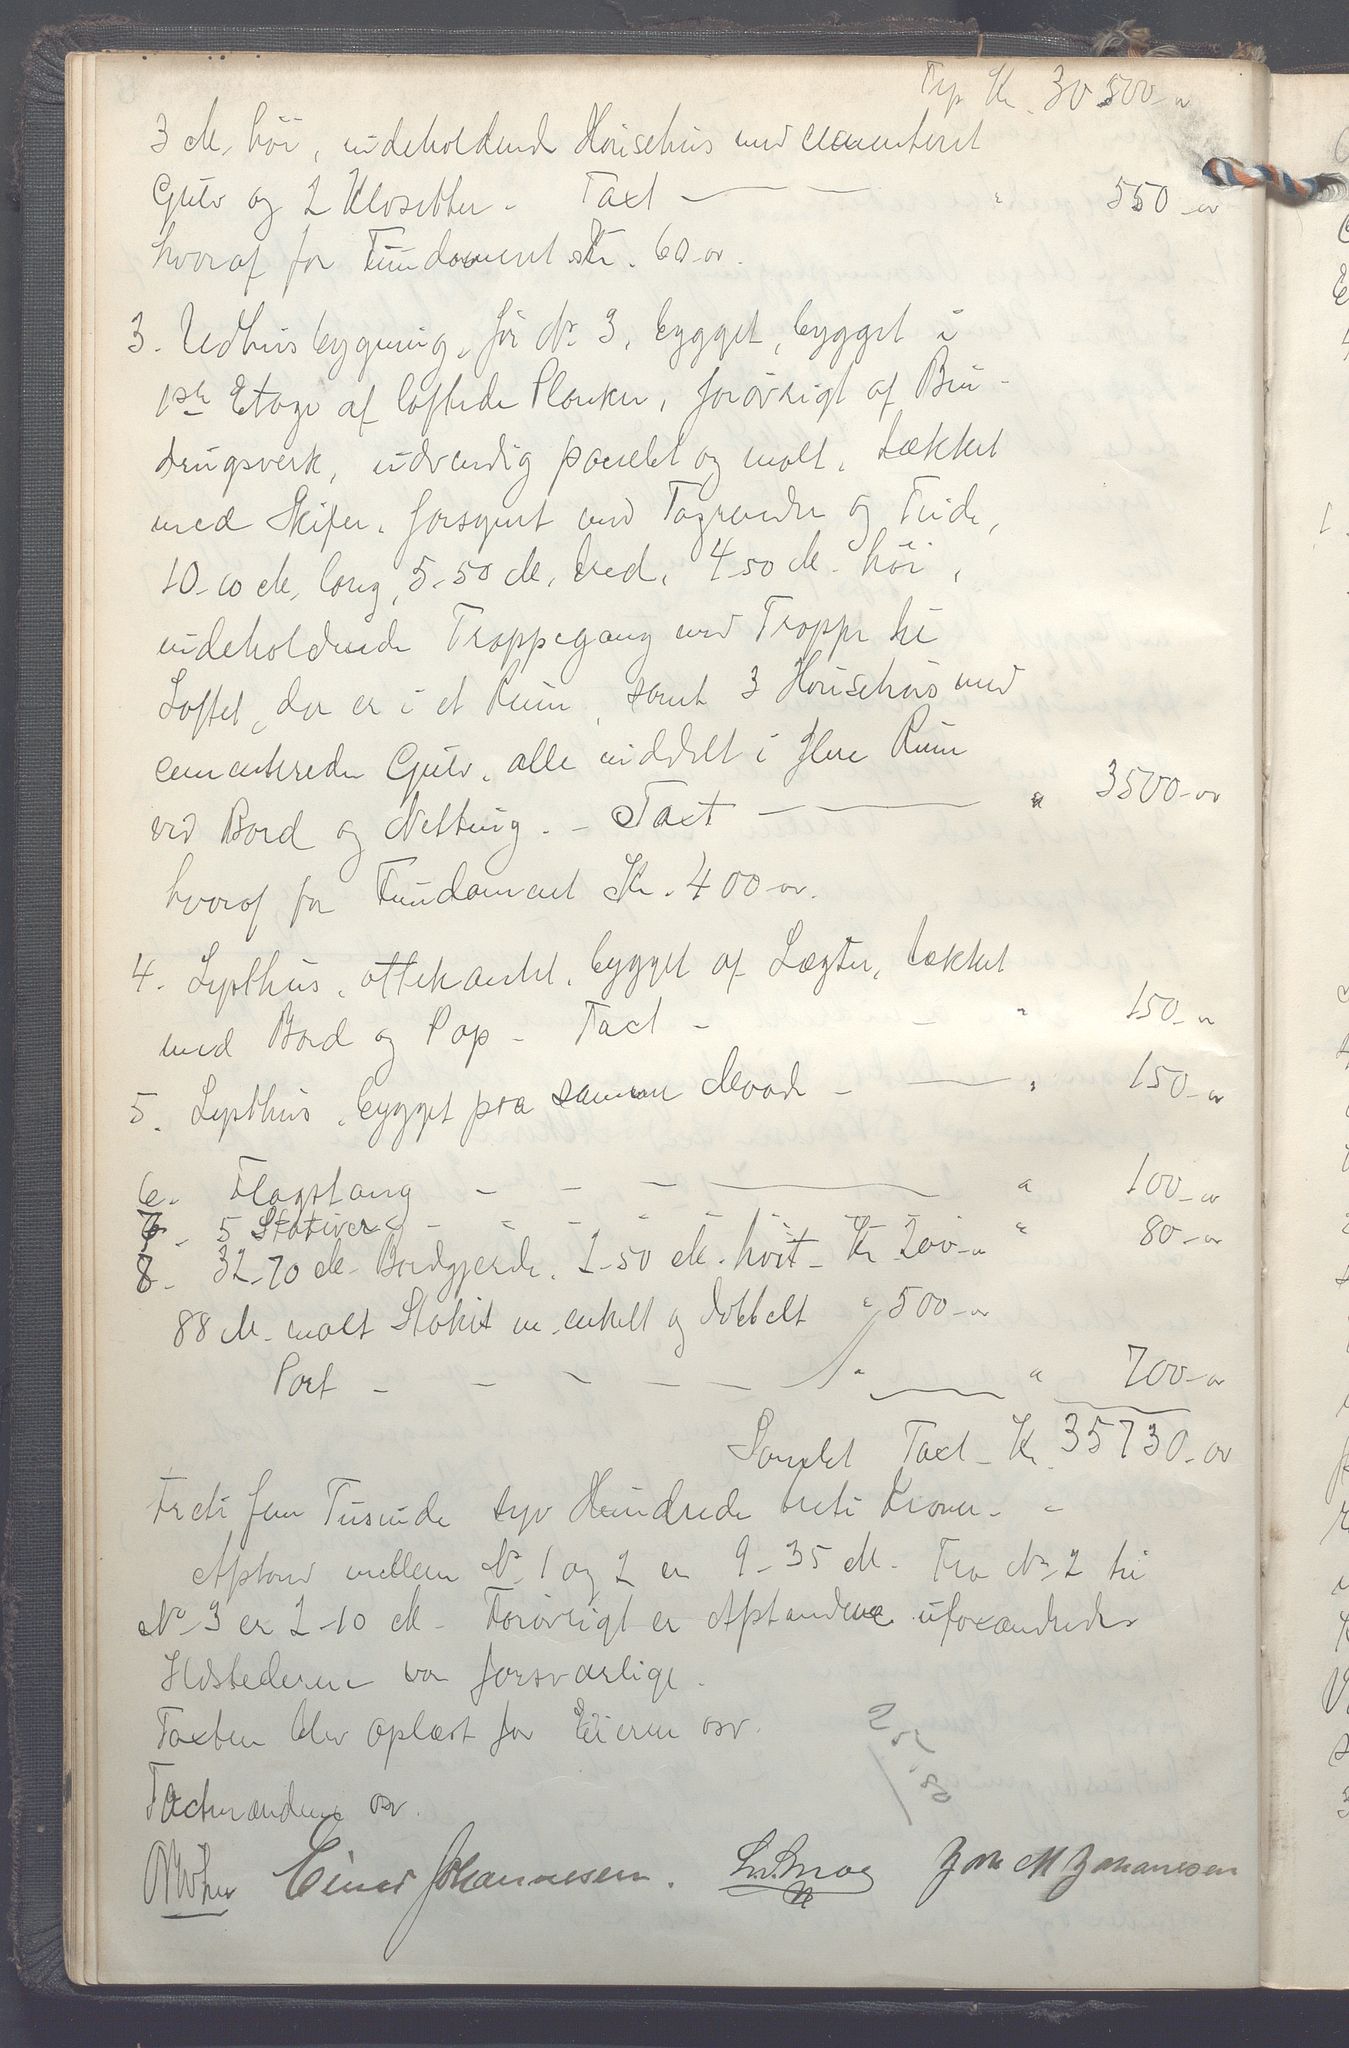 Trp Kr. 30500 -
3 M. höi, indeholdende Hönsehus med cementeret
Gulv og 2 Klosetter - Taxt — — " 550 -
hvoraf for Fundament Kr. 60 -
3. Udhusbygning, för No 3, bygget, bygget i
1ste Etage af loftede Planker, forøvrigt af Bin-
dingsverk, udvendig panelet og malt, tækket
med Skifer, forsynet med Tagrender og Tude,
10-10 M. lang, 5-50 M. bred, 4-50 M. höi,
indeholdende Trappegang med Trappe til
Loftet, der er i et Rum, samt 3 Hönsehus med
cementerede Gulv, alle inddelt i flere Rum
ved Bord og Netting. - Taxt — " 3500 -
hvoraf for Fundament Kr. 400 -
4. Lysthus, ottekantet, bygget af Lægter, tækket
med Bord og Pap - Taxt - - " 150 -
5. Lysthus, bygget paa samme Maade - — " 150 -
6. Flagstang - - - — " 100 -
7 - 5 Stativer - - - - - - " 80 -
8 - 32-70 M. Bordgjerde, 2-50 M. höit - Kr 200 -
88 M. malt Stakit m. enkelt og dobbelt " 500 -
Port - - - - - " — " 700 -
Samlet Taxt - Kr. 35730 -
Treti fem Tusinde syv Hundrede treti Kroner - -
Afstand mellem No 1 og 2 er 9-35 M. Fra No 2 til
No 3 er 2-10 M - Forøvrigt er Afstandene uforandrede
Ildstederne var forsvarlige.
Taxten blev oplæst for Eieren osv.
Taxtmændene osv.
Einar Johannesen. Joh M Johannesen